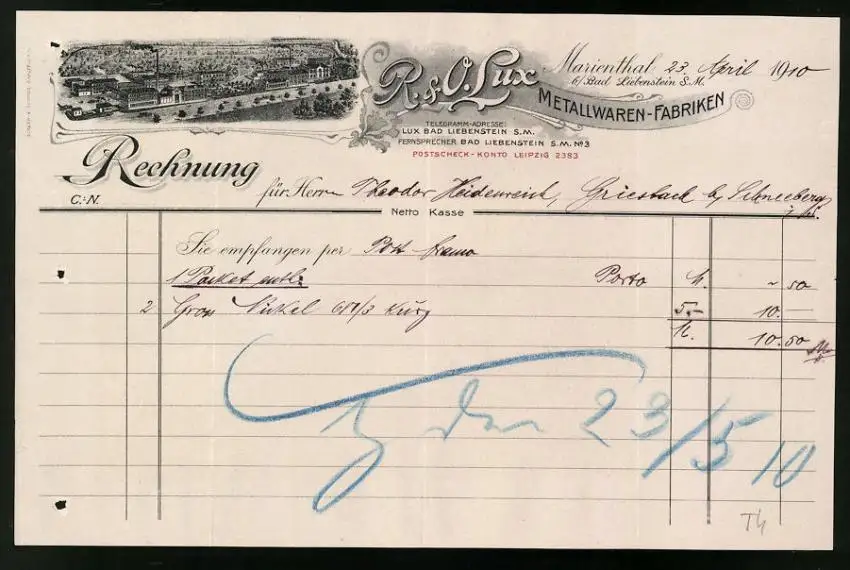 R. & O. Lux
Marienthal 23. April 1910
b/Bad Liebenstein S.M.
METALLWAREN-FABRIKEN
TELEGRAMM-ADRESSE:
LUX BAD LIEBENSTEIN S.M.
FERNSPRECHER BAD LIEBENSTEIN S.M. No 3
POSTSCHECK-KONTO LEIPZIG 2383
Rechnung
C.-N.
für Herrn Theodor Heidenreich, Griesbach b/ Schneeberg
i/S.
Netto Kasse
Sie empfangen per Post franco
1 Packet enth: Porto M. ~ 50
2 Gross Nickel kurz 5.- 10.—
M. 10.50
den 23/5 10
Th